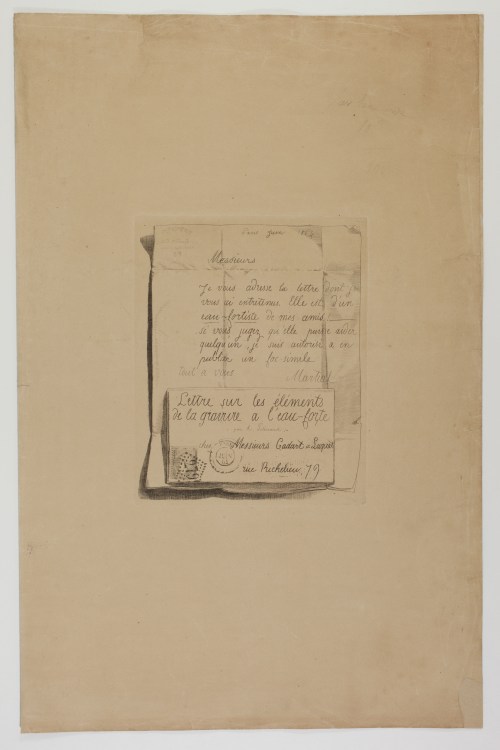 Messieurs
Je vous adresse la lettre dont je
vous ai entretenus. Elle est d'un
eau-fortiste de mes amis
si vous jugez qu'elle puisse aider
quelqu'un, je suis autorisé à en
publier un fac-simile.
Tout à vous
Martial
Lettre sur les éléments
de la gravure à l'eau-forte
chez Messieurs Cadart et Luquet
rue Richelieu, 79